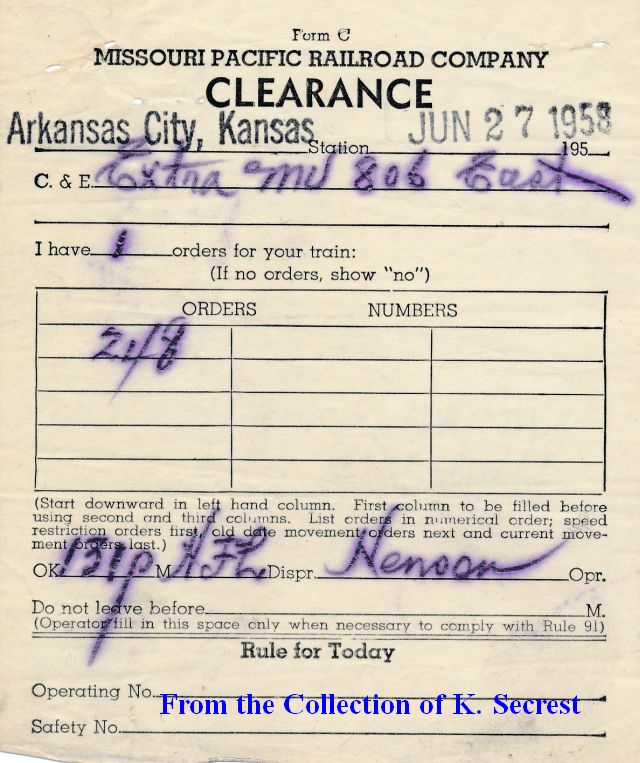 Form C
MISSOURI PACIFIC RAILROAD COMPANY
CLEARANCE
Arkansas City, Kansas Station JUN 27 1958 195
C. & E. Extra 806 East
I have 1 orders for your train:
(If no orders, show "no")
ORDERS NUMBERS
218
(Start downward in left hand column. First column to be filled before
using second and third columns. List orders in numerical order; speed
restriction orders first, old date movement orders next and current move-
ment orders last.)
OK 131p M Dispr. Opr.
Do not leave before M.
(Operator fill in this space only when necessary to comply with Rule 91)
Rule for Today
Operating No.
From the Collection of K. Secrest
Safety No.